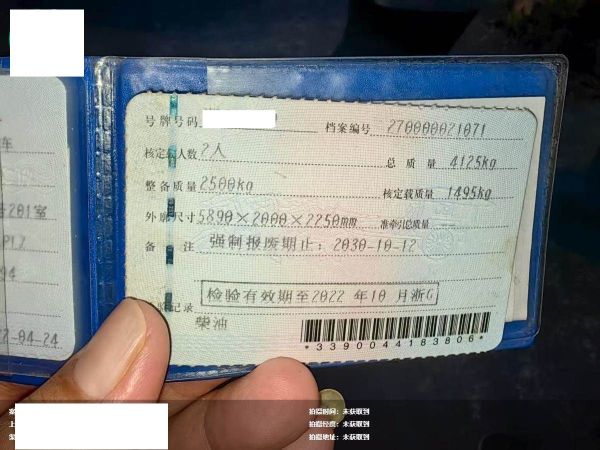 号牌号码
档案编号 270000021071
核定载人数 2人
总质量 4125kg
整备质量 2500kg
核定载质量 1495kg
外廓尺寸 5890×2000×2250mm
准牵引总质量
备注 强制报废期止：2030-10-12
检验有效期至2022 年10 月浙G
记录
柴油
*3390044183806*
车
201室
94
-04-24
拍摄时间：未获取到
拍摄经度：未获取到
拍摄地址：未获取到